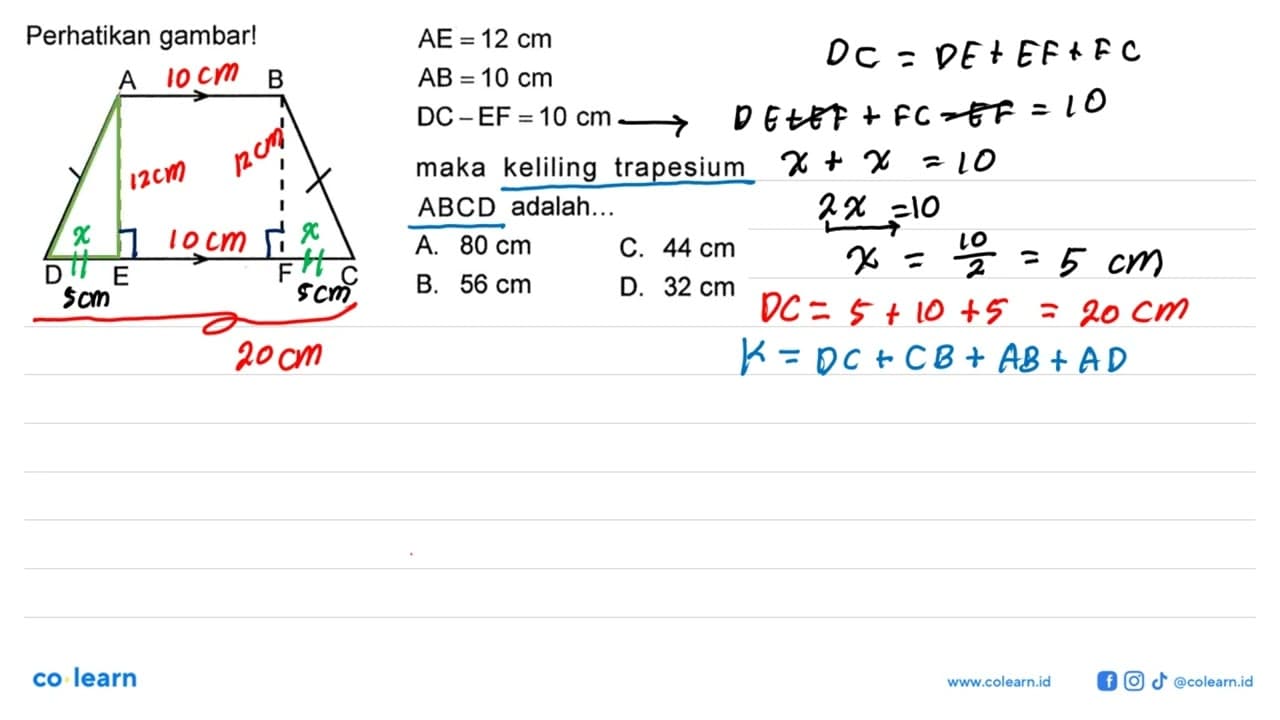 Perhatikan gambar!
A 10 cm B
12 cm
12 cm
x 10 cm x
D E F C
5 cm 5 cm
20 cm
AE = 12 cm
AB = 10 cm
DC – EF = 10 cm
maka keliling trapesium
ABCD adalah...
A. 80 cm C. 44 cm
B. 56 cm D. 32 cm
DC = DE + EF + FC
DE + EF + FC - EF = 10
x + x = 10
2x = 10
x = 10/2 = 5 cm
DC = 5 + 10 + 5 = 20 cm
K = DC + CB + AB + AD
co learn
www.colearn.id
@colearn.id